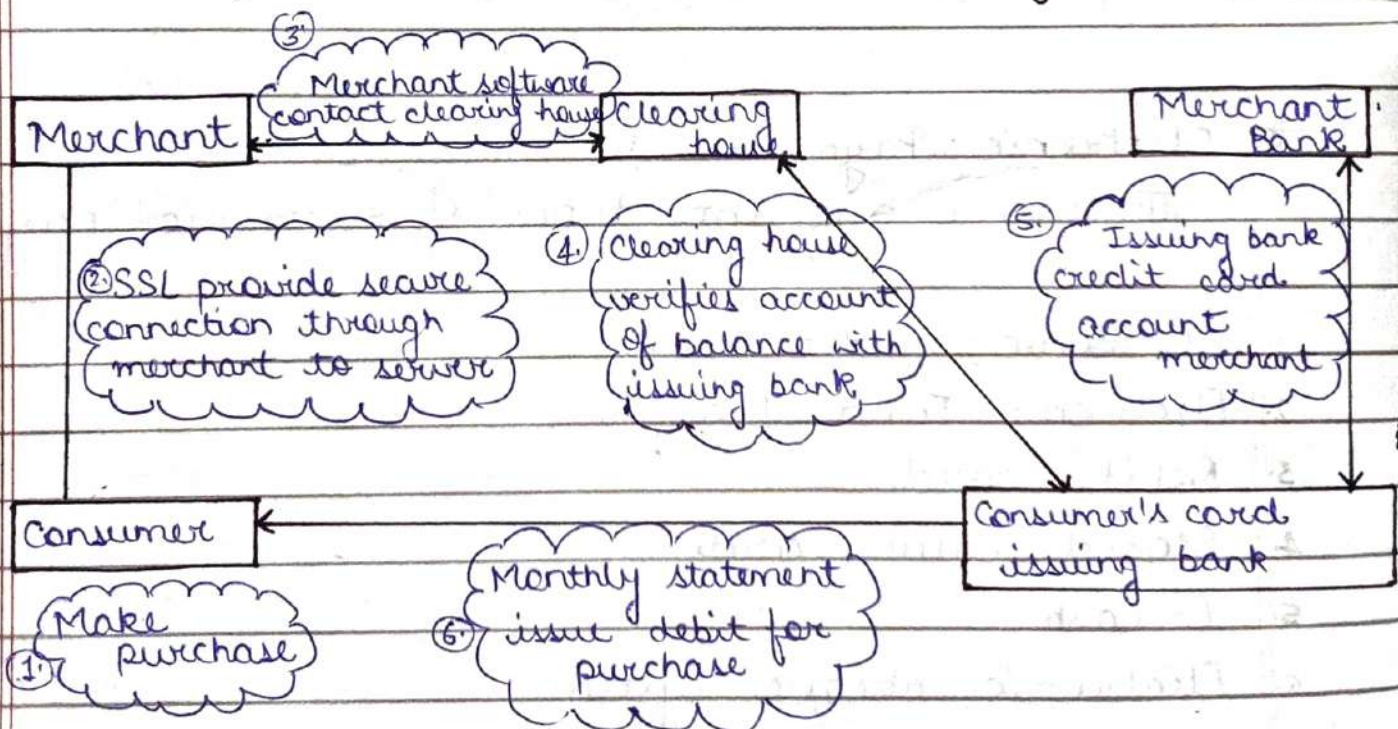 3.
Merchant software
contact clearing house
Merchant
Clearing
house
Merchant
Bank
2. SSL provide secure
connection through
merchant to server
4. Clearing house
verifies account
of balance with
issuing bank
5. Issuing bank
credit card
account
merchant
Consumer
Consumer's card
issuing bank
1. Make
purchase
6. Monthly statement
issue debit for
purchase